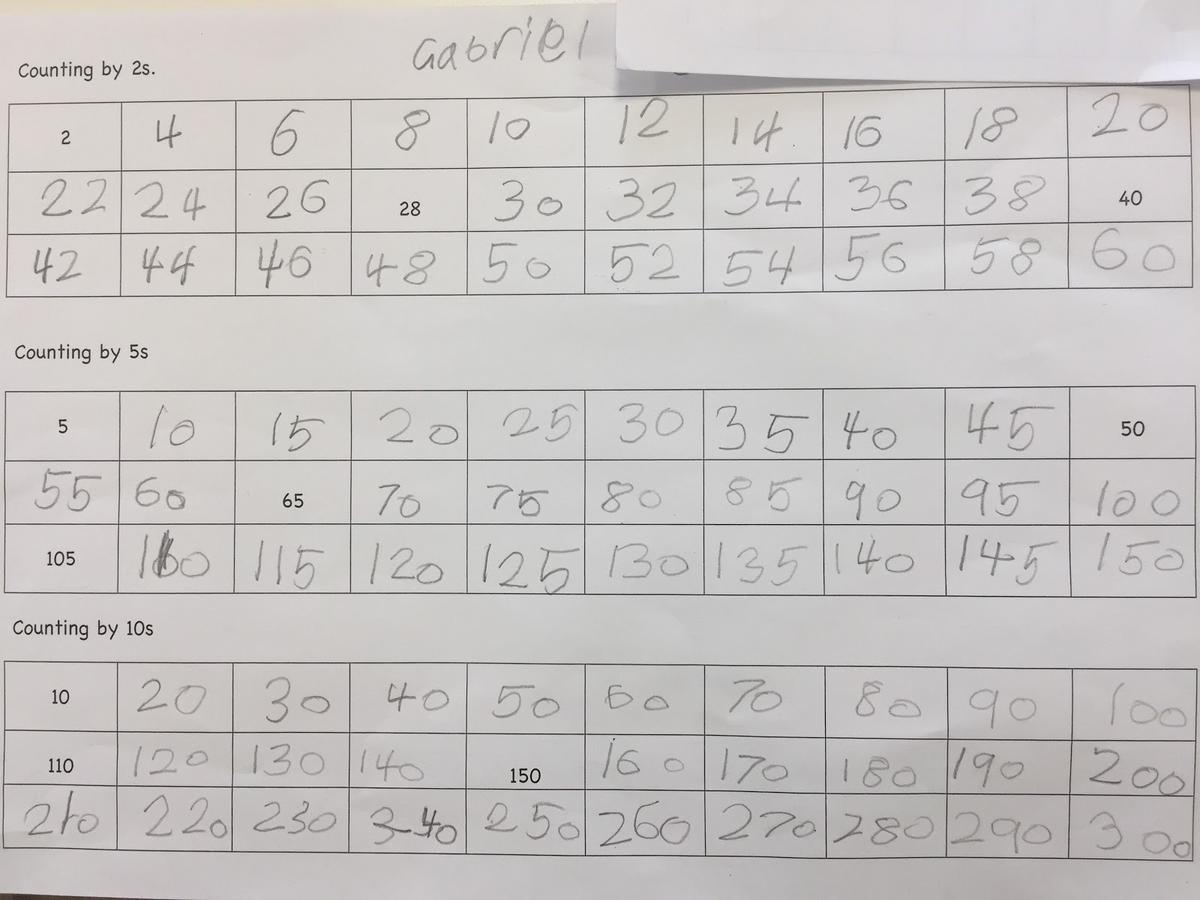 Gabriel
Counting by 2s.
2 4 6 8 10 12 14 16 18 20
22 24 26 28 30 32 34 36 38 40
42 44 46 48 50 52 54 56 58 60
Counting by 5s
5 10 15 20 25 30 35 40 45 50
55 60 65 70 75 80 85 90 95 100
105 110 115 120 125 130 135 140 145 150
Counting by 10s
10 20 30 40 50 60 70 80 90 100
110 120 130 140 150 160 170 180 190 200
210 220 230 340 250 260 270 280 290 300